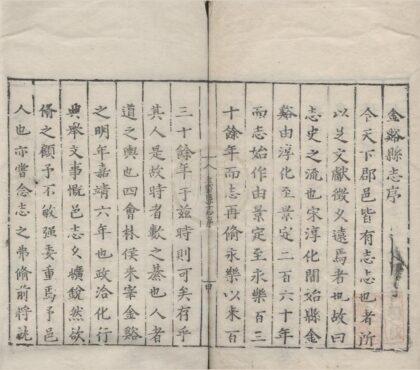 金谿縣志序
今天下郡邑皆有志志也者所
以足文獻徵久遠焉者也故曰
志史之流也宋淳化間始縣金
谿由淳化至景定二百六十年
而志始作由景定至永樂百三
十餘年而志再脩永樂以來百
三十餘年于茲時則可矣有乎
其人是故時者數之也人者
道之輿也四會林侯來宰金谿
之明年嘉靖六年也政洽化行
典舉文事慨邑志久曠銳然欲
脩之顧予不敏強委重焉予邑
人也亦嘗念志之弗脩前將